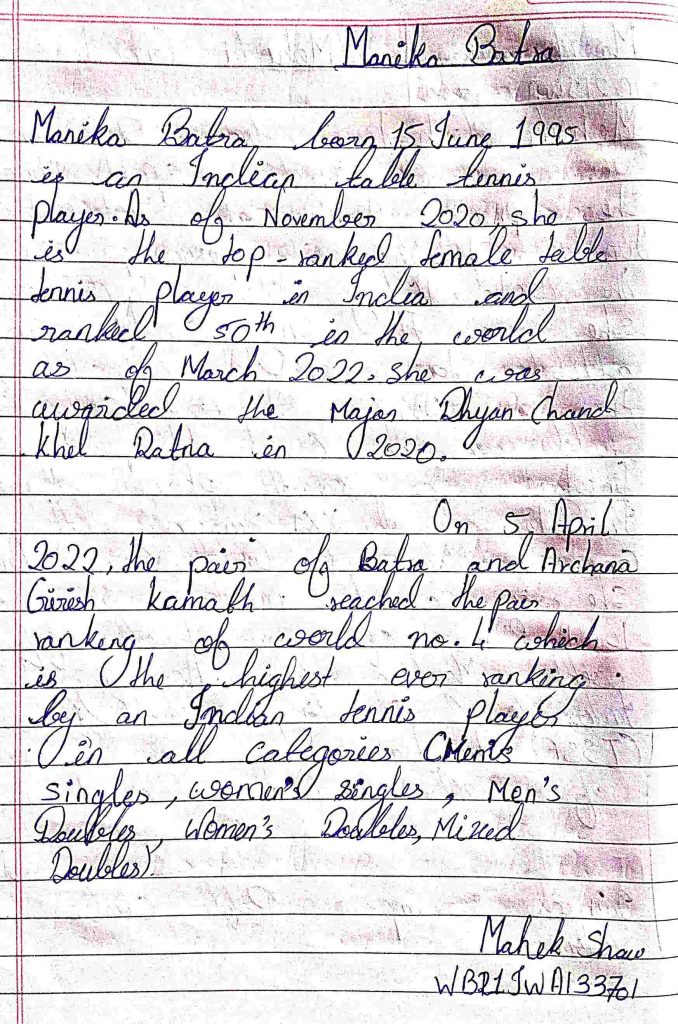 Manika Batra
Manika Batra born 15 June 1995
is an Indian table tennis
player. As of November 2020, she
is the top-ranked female table
tennis player in India and
ranked 50th in the world
as of March 2022. She was
awarded the Major Dhyan Chand
Khel Ratna in 2020.
On 5 April
2022, the pair of Batra and Archana
Girish Kamath reached the pair
ranking of world no. 4 which
is the highest ever ranking
by an Indian tennis player
in all categories (Men's
Singles, women's Singles, Men's
Doubles, Women's Doubles, Mixed
Doubles).
Mahek Shaw
WB21JWA133701